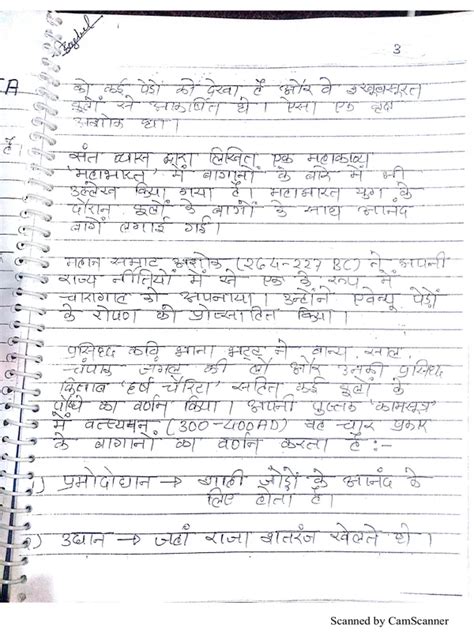 3
को कई पेडो को देखा है और वे खूबसूरत
फूलों से आकर्षित हो । ऐसा एक वृक्ष
अशोक था।
संत व्यास द्वारा लिखित एक महाकाव्य
'महाभारत' में बागानों के बारे में भी
उल्लेख किया गया है। महाभारत युग के
दौरान फूलों के बागों के साथ आनंद
बागें लगाई गई।
महान सम्राट अशोक (264-227 BC) ने अपनी
राज्य नीतियों में से एक के रूप में
चारागाह को अपनाया। उन्होंने एवेन्यू पेड़ों
के रोपण को प्रोत्साहित किया।
प्रसिध्द कवि भाना भट्ट ने वान्य, साल,
चंपाड जंगल की ली और उनकी प्रसिध्द
किताब 'हर्ष चरिता' सहित कई फूलों के
पौधे का वर्णन किया। अपनी पुस्तक 'कामसूत्र'
में वत्स्यमन (300-400AD) वह चार प्रकार
के बागानों का वर्णन करता है :-
1) प्रमोदोधान → शाही जोड़ों के आनंद के
लिए होता है।
2) उधान → जहां राजा शतरंज खेलते हो ।
Scanned by CamScanner